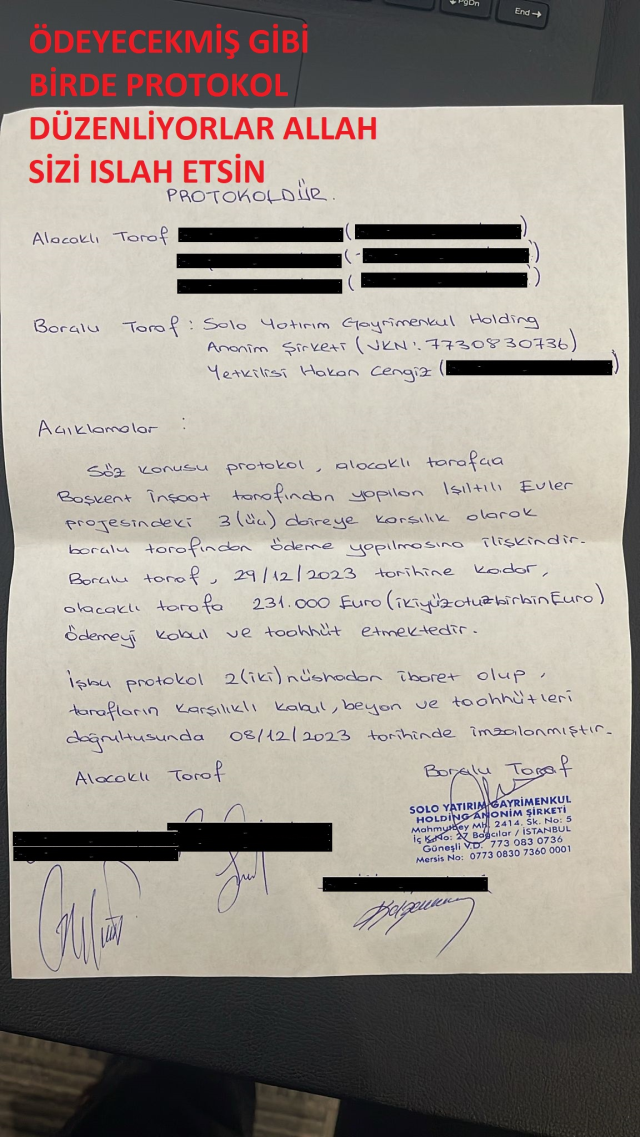 PgDn
End→
ÖDEYECEKMİŞ GİBİ
BİRDE PROTOKOL
DÜZENLİYORLAR ALLAH
SİZİ ISLAH ETSİN
PROTOKOLDÜR.
Alacaklı Taraf ( )
( )
( )
Borçlu Taraf : Solo Yatırım Gayrimenkul Holding
Anonim Şirketi (VKN: 7730830736)
Yetkilisi Hakan Cengiz ( )
Açıklamalar :
Söz konusu protokol, alacaklı tarafça
Başkent İnşaat tarafından yapılan Işıltılı Evler
projesindeki 3(üç) daireye karşılık olarak
borçlu tarafından ödeme yapılmasına ilişkindir.
Borçlu taraf, 29/12/2023 tarihine kadar,
alacaklı tarafa 231.000 Euro (ikiyüzotuzbirbinEuro)
ödemeyi kabul ve taahhüt etmektedir.
İşbu protokol 2(iki) nüshadan ibaret olup,
tarafların karşılıklı kabul, beyan ve taahhütleri
doğrultusunda 08/12/2023 tarihinde imzalanmıştır.
Alacaklı Taraf
Borçlu Taraf
SOLO YATIRIM GAYRİMENKUL
HOLDİNG ANONİM ŞİRKETİ
Mahmutbey Mh. 2414. Sk. No: 5
İç K.No: 27 Bağcılar / İSTANBUL
Güneşli V.D. 773 083 0736
Mersis No: 0773 0830 7360 0001